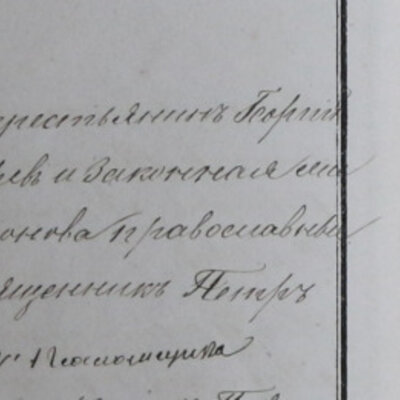 рестьянинъ Георгій
евъ и законная
онова православные
ященникъ Петръ
и Псаломщика